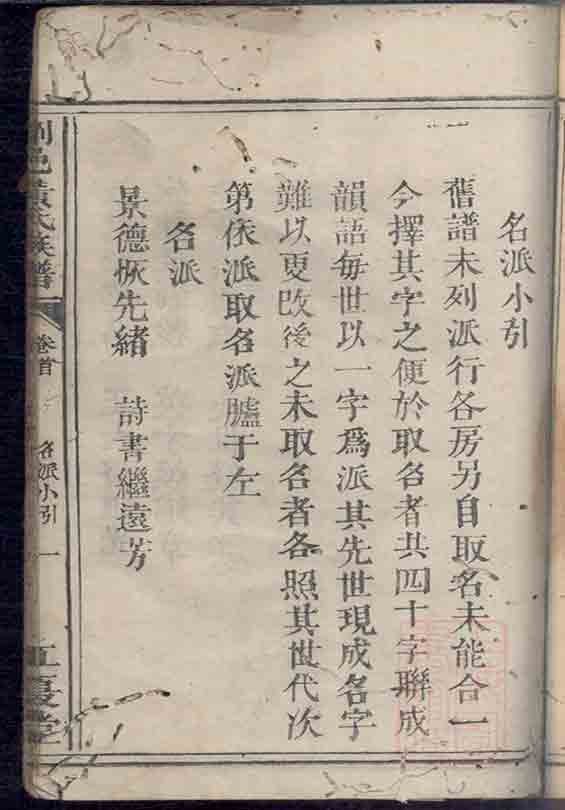 名派小引
舊譜未列派行各房另自取名未能合一
今擇其字之便於取名者共四十字聯成
韻語每世以一字爲派其先世現成名字
難以更改後之未取名者各照其世代次
第依派取名派臚于左
名派
景德恢先緒 詩書繼遠芳
邑黃氏族譜 卷首 名派小引 一